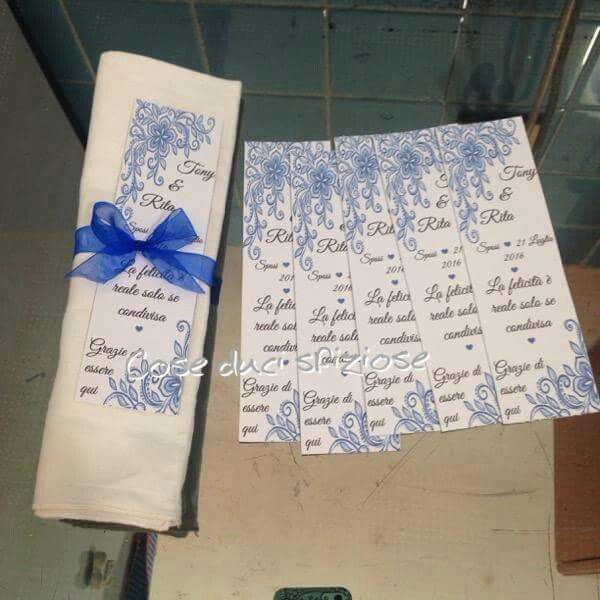 Tony
&
Rita
Sposi Luglio
La felicità è
reale solo se
condivisa
Grazie di
essere
qui
Rita
Sposi
2016
La
reale
con
Grazie
essere
qui
Sposi
2016
La
reale
con
Grazie di
essere
qui
Rita
Sposi
2016
La
reale
con
Grazie
essere
qui
Rita
Sposi 21
2016
La felicità
reale solo
condivisa
Grazie di
essere
qui
Tony
&
Rita
Sposi 21 Luglio
2016
La felicità è
reale solo se
condivisa
Grazie di
essere
qui
Cose duci sfiziose